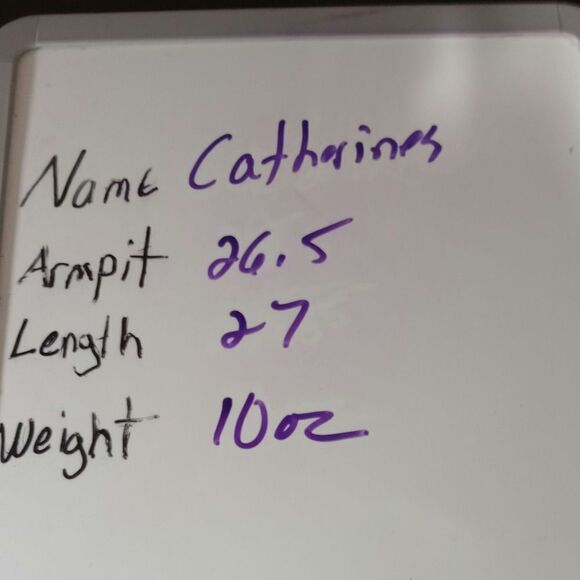 Name Catherines
Armpit 26.5
Length 27
Weight 10oz